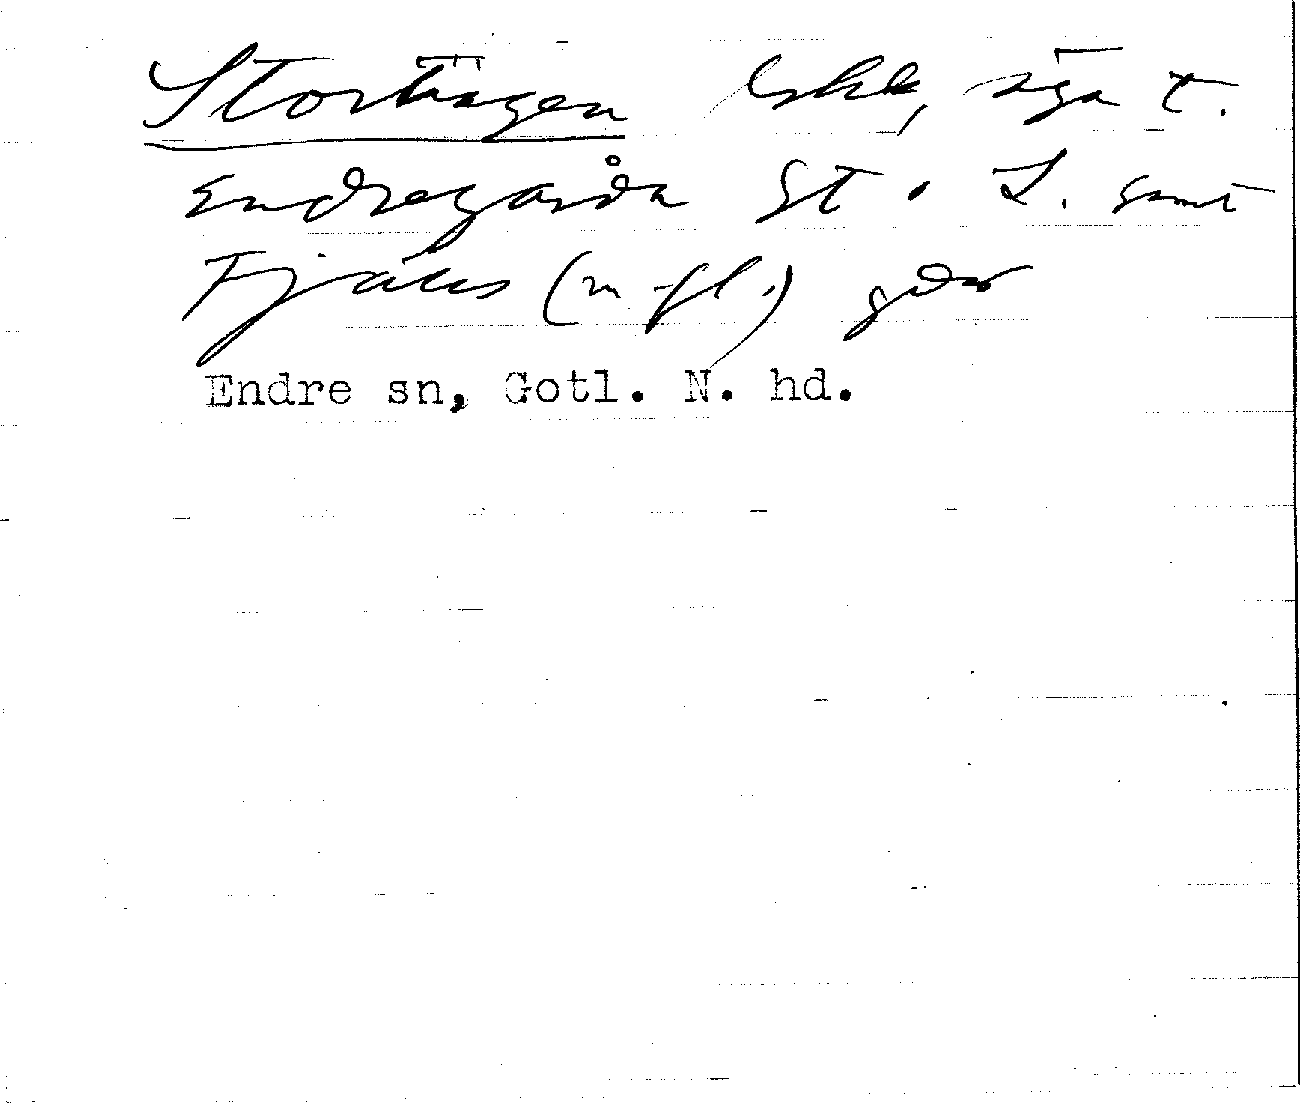 Storhagen bskr, äga t.
Endregårda St. o L. samt
Fjäls (m fl.) gdr
Endre sn, Gotl. N. hd.